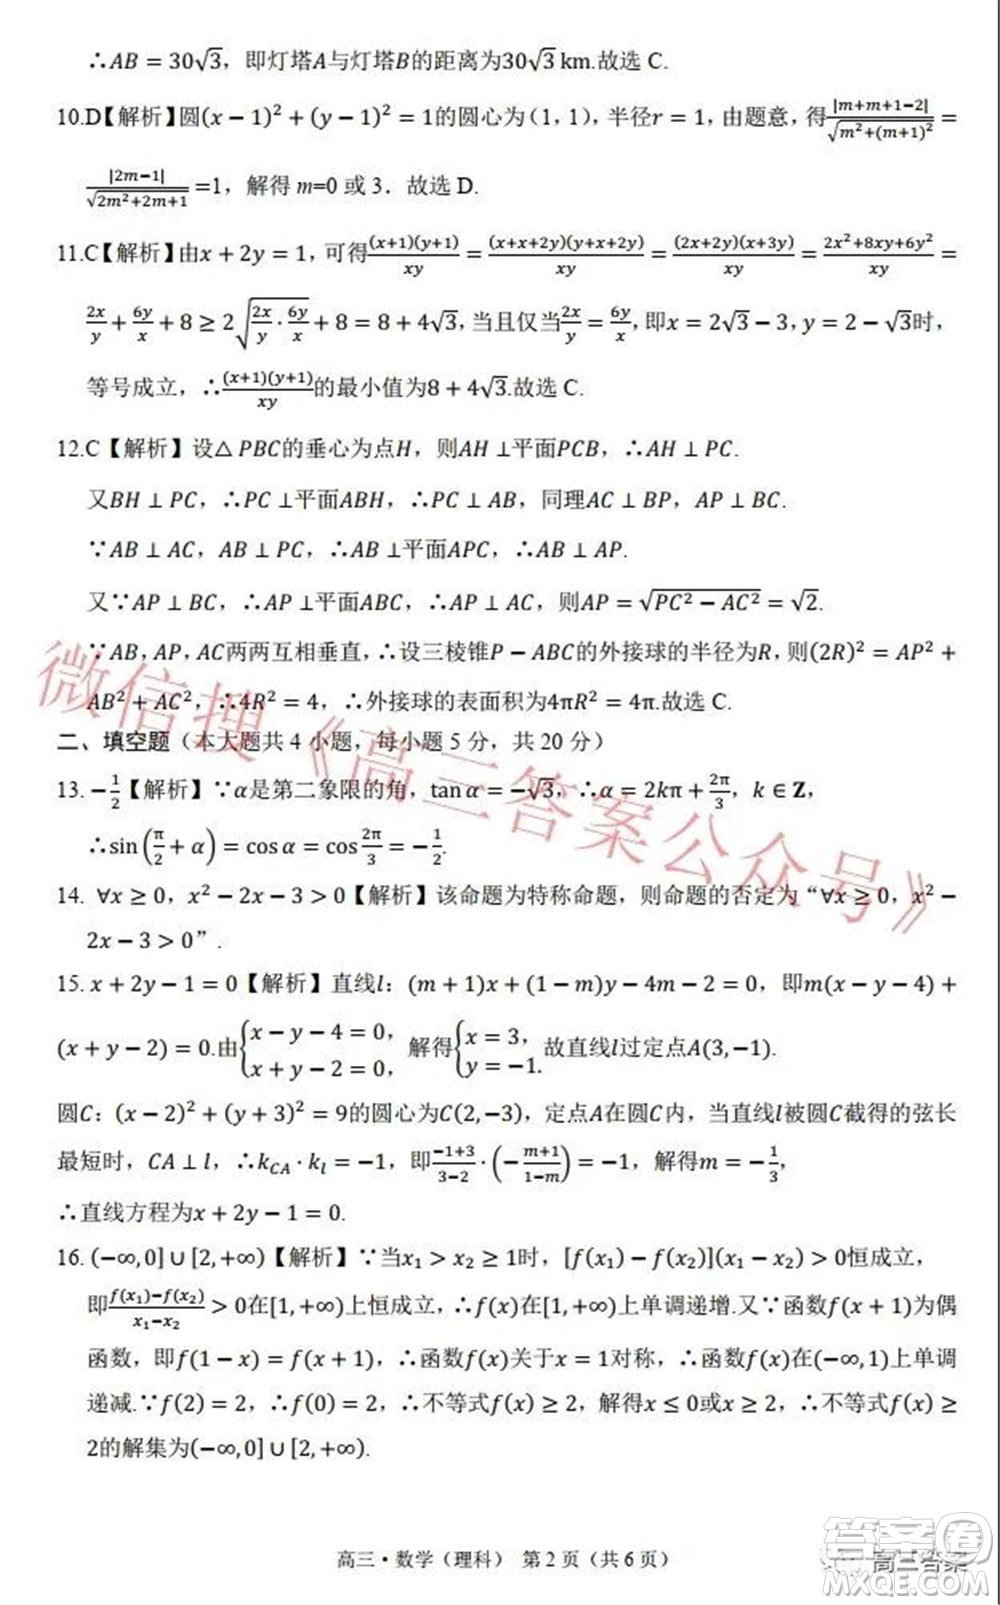 ∴AB = 30√3，即灯塔A与灯塔B的距离为30√3 km.故选 C.
10.D【解析】圆(x − 1)² + (y − 1)² = 1的圆心为(1, 1)，半径r = 1，由题意，得|m+m+1−2|/√(m²+(m+1)²) =
|2m−1|/√(2m²+2m+1) =1，解得 m=0 或 3．故选 D.
11.C【解析】由x + 2y = 1，可得(x+1)(y+1)/xy = (x+x+2y)(y+x+2y)/xy = (2x+2y)(x+3y)/xy = (2x²+8xy+6y²)/xy =
2x/y + 6y/x + 8 ≥ 2√(2x/y · 6y/x) + 8 = 8 + 4√3，当且仅当2x/y = 6y/x，即x = 2√3 − 3，y = 2 − √3时，
等号成立，∴(x+1)(y+1)/xy的最小值为8 + 4√3.故选 C.
12.C【解析】设△ PBC的垂心为点H，则AH ⊥平面PCB，∴AH ⊥ PC.
又BH ⊥ PC，∴PC ⊥平面ABH，∴PC ⊥ AB，同理AC ⊥ BP，AP ⊥ BC.
∵AB ⊥ AC，AB ⊥ PC，∴AB ⊥平面APC，∴AB ⊥ AP.
又∵AP ⊥ BC，∴AP ⊥平面ABC，∴AP ⊥ AC，则AP = √(PC² − AC²) = √2.
∵AB，AP，AC两两互相垂直，∴设三棱锥P − ABC的外接球的半径为R，则(2R)² = AP² +
AB² + AC²，∴4R² = 4，∴外接球的表面积为4πR² = 4π.故选 C.
二、填空题（本大题共 4 小题，每小题 5 分，共 20 分）
13. −1/2【解析】∵α是第二象限的角，tan α = −√3，∴α = 2kπ + 2π/3，k ∈ Z，
∴sin(π/2 + α) = cos α = cos 2π/3 = −1/2.
14. ∀x ≥ 0，x² − 2x − 3 > 0【解析】该命题为特称命题，则命题的否定为“∀x ≥ 0，x² −
2x − 3 > 0”.
15. x + 2y − 1 = 0【解析】直线l：(m + 1)x + (1 − m)y − 4m − 2 = 0，即m(x − y − 4) +
(x + y − 2) = 0.由{x − y − 4 = 0, x + y − 2 = 0, 解得{x = 3, y = −1. 故直线l过定点A(3, −1).
圆C：(x − 2)² + (y + 3)² = 9的圆心为C(2, −3)，定点A在圆C内，当直线l被圆C截得的弦长
最短时，CA ⊥ l，∴k_CA · k_l = −1，即(−1+3)/(3−2) · (−(m+1)/(1−m)) = −1，解得m = −1/3，
∴直线方程为x + 2y − 1 = 0.
16. (−∞, 0] ∪ [2, +∞)【解析】∵当x₁ > x₂ ≥ 1时，[f(x₁) − f(x₂)](x₁ − x₂) > 0恒成立，
即(f(x₁)−f(x₂))/(x₁−x₂) > 0在[1, +∞)上恒成立，∴f(x)在[1, +∞)上单调递增.又∵函数f(x + 1)为偶
函数，即f(1 − x) = f(x + 1)，∴函数f(x)关于x = 1对称，∴函数f(x)在(−∞, 1)上单调
递减.∵f(2) = 2，∴f(0) = 2，∴不等式f(x) ≥ 2，解得x ≤ 0或x ≥ 2，∴不等式f(x) ≥
2的解集为(−∞, 0] ∪ [2, +∞).
微信搜《高三答案公众号》
高三·数学（理科） 第 2 页（共 6 页）
高三答案
答案圈
MXQE.COM